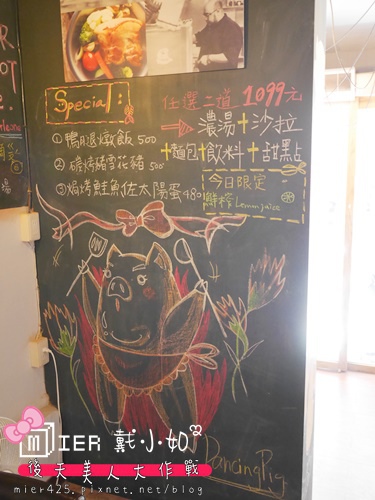 Special:
任選二道 1099元
→ 濃湯+沙拉
+麵包+飲料+甜點
① 鴨腿燉飯 500
② 碳烤雪花豬 500
③ 焗烤鮭魚佐太陽蛋 480
今日限定
鮮榨Lemon juice
DancingPig
MIER 戴小如
後天美人大作戰
mier425.pixnet.net/blog